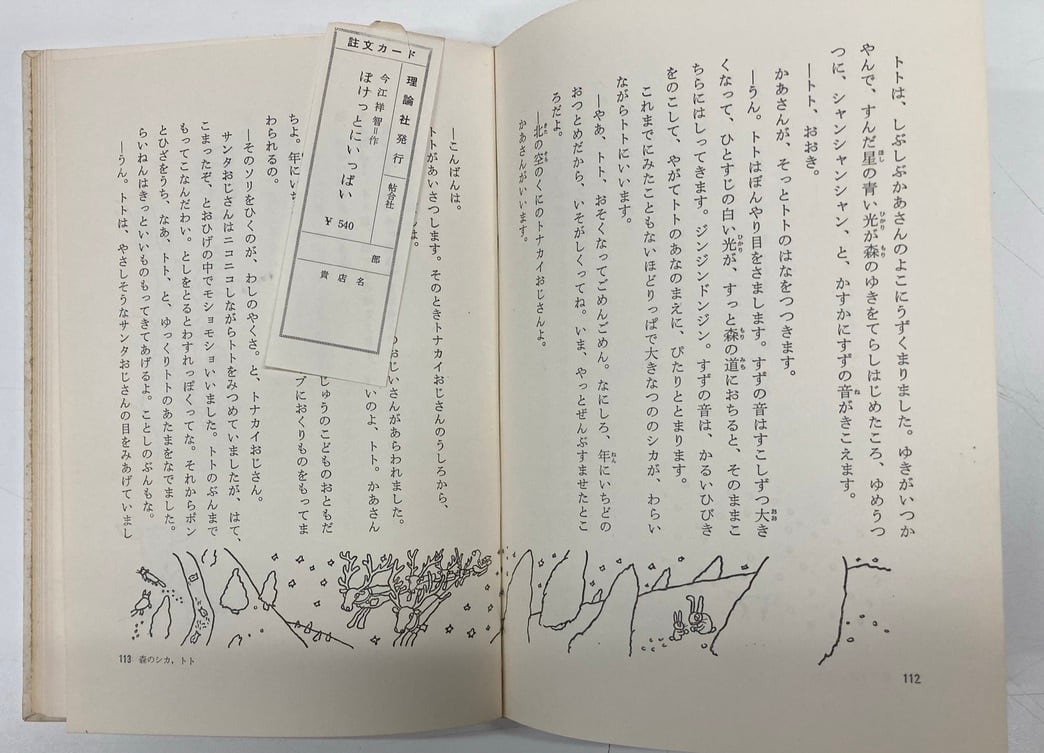 トトは、しぶしぶかあさんのよこにうずくまりました。ゆきがいつか
やんで、すんだ星の青い光が森のゆきをてらしはじめたころ、ゆめうつ
つに、シャンシャンシャン、と、かすかにすずの音がきこえます。
―トト、おおき。
かあさんが、そっとトトのはなをつつきます。
―うん。トトはぼんやり目をさまします。すずの音はすこしずつ大き
くなって、ひとすじの白い光が、すっと森の道におちると、そのままこ
ちらにはしってきます。ジンジンドンジン。すずの音は、かるいひびき
をのこして、やがてトトのあなのまえに、ぴたりととまります。
これまでにみたこともないほどりっぱで大きなつののシカが、わらい
ながらトトにいいます。
―やあ、トト、おそくなってごめんごめん。なにしろ、年にいちどの
おつとめだから、いそがしくってね。いま、やっとぜんぶすませたとこ
ろだよ。
―北の空のくにのトナカイおじさんよ。
かあさんがいいます。
112
―こんばんは。
トトがあいさつします。そのときトナカイおじさんのうしろから、
は。
のおじいさんがあらわれました。
いのよ、トト。かあさん
じゅうのこどものおともだ
ちよ。年にい
プにおくりものをもってま
わられるの。
―そのソリをひくのが、わしのやくさ。と、トナカイおじさん。
サンタおじさんはニコニコしながらトトをみつめていましたが、はて、
こまったぞ、とおひげの中でモショモショいいました。トトのぶんまで
もってこなんだわい。としをとるとわすれっぽくってな。それからポン
とひざをうち、なあ、トト、と、ゆっくりトトのあたまをなでました。
らいねんはきっといいものもってきてあげるよ。ことしのぶんもな。
―うん。トトは、やさしそうなサンタおじさんの目をみあげていまし
113 森のシカ，トト
註文カード
理論社発行
帖合社
今江祥智=作
ぽけっとにいっぱい
￥540
部
貴店名